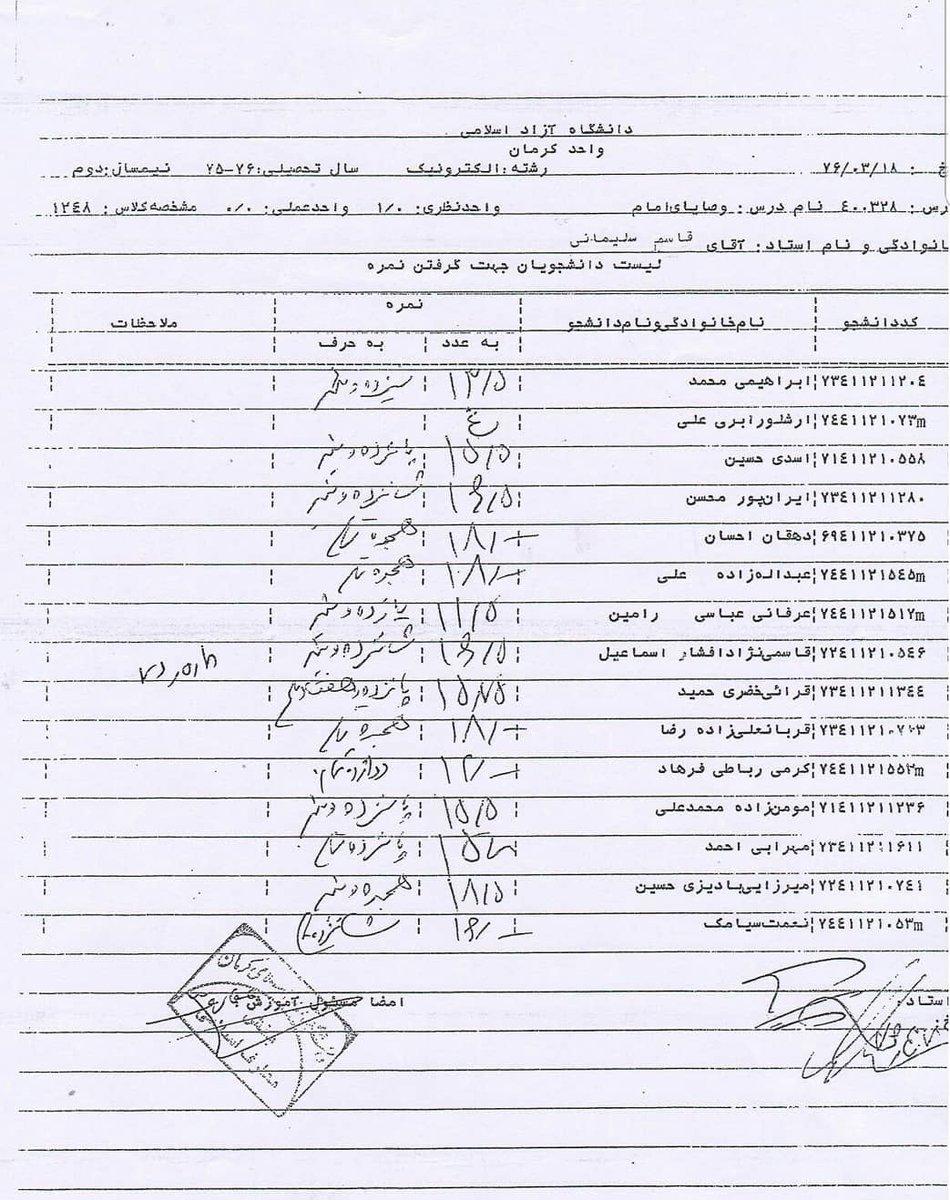 دانشگاه آزاد اسلامی
واحد کرمان
خ : ۷۶/۰۳/۱۸ رشته:الکترونیک سال تحصیلی:۷۶-۷۵ نیمسال:دوم
رس : ۴۰۰۳۲۸ نام درس : وصایای امام واحدنظری: ۱/۰ واحدعملی: ۰/۰ مشخصه کلاس : ۱۲۴۸
انوادگی و نام استاد: آقای قاسم سلیمانی
لیست دانشجویان جهت گرفتن نمره
کددانشجو نام خانوادگی و نام دانشجو نمره ملاحظات
به عدد به حرف
۷۳۴۱۱۲۱۱۲۰۴ ابراهیمی محمد ۱۳/۵ سیزده و نیم
۷۴۴۱۱۲۱۰۷۳m ارشلو رابری علی غ
۷۱۴۱۱۲۱۰۵۵۸ اسدی حسین ۱۵/۵ پانزده و نیم
۷۳۴۱۱۲۱۱۲۸۰ ایران‌پور محسن ۱۶/۵ شانزده و نیم
۶۹۴۱۱۲۱۰۳۷۵ دهقان احسان ۱۸/- هجده تمام
۷۴۴۱۱۲۱۵۴۵m عبداله‌زاده علی ۱۸/- هجده تمام
۷۴۴۱۱۲۱۵۱۷m عرفانی عباسی رامین ۱۱/۵ یازده و نیم
۷۲۴۱۱۲۱۰۵۴۶ قاسمی‌نژادافشار اسماعیل ۱۶/۵ شانزده و نیم
۷۳۴۱۱۲۱۱۳۴۴ قرائی‌خضری حمید ۱۵/۷۵
۷۳۴۱۱۲۱۰۷۰۳ قربانعلی‌زاده رضا ۱۸/- هجده تمام
۷۴۴۱۱۲۱۵۵۲m کرمی رباطی فرهاد ۱۲/- دوازده تمام
۷۱۴۱۱۲۱۱۲۳۶ مومن‌زاده محمدعلی ۱۵/۵ پانزده و نیم
۷۳۴۱۱۲۱۱۶۱۱ مهرابی احمد ۱۵/- پانزده تمام
۷۲۴۱۱۲۱۰۷۴۱ میرزایی‌بادیزی حسین ۱۸/۵ هجده و نیم
۷۴۴۱۱۲۱۰۵۳m نعمت سیامک ۱۶/- شانزده
استاد امضا مسئول آموزش